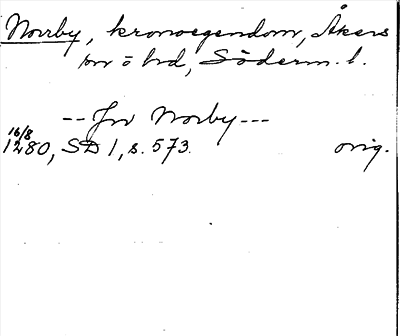 Norrby, kronoegendom, Åkers
sn o hd, Söderm. l.
--Jn Norby---
16/8
1280, SD 1, s. 573. orig.